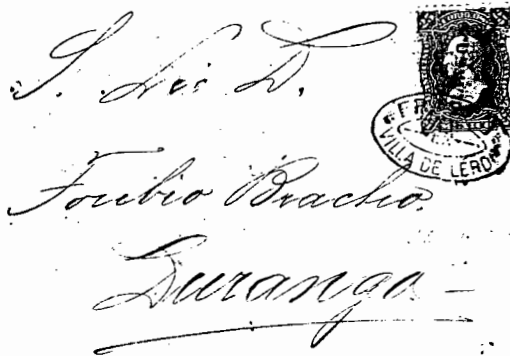 S. Lic D.
FRANCO
VILLA DE LERDO
Toribio Bracho.
Durango